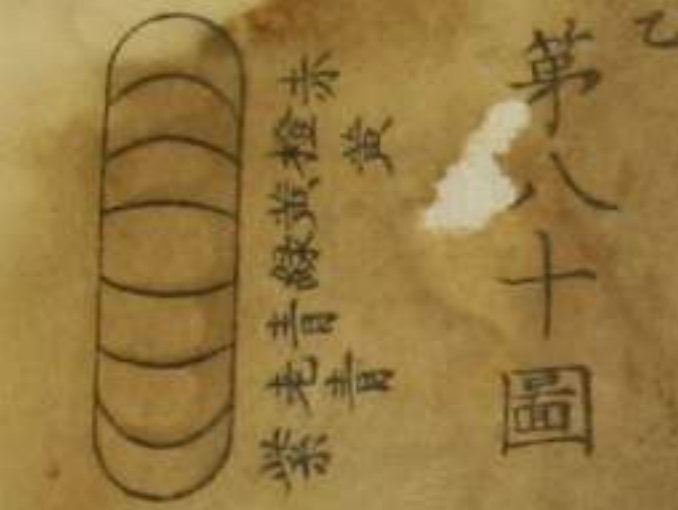 乙
第八十圖
赤
橙黃
黃
綠
青
老青
紫